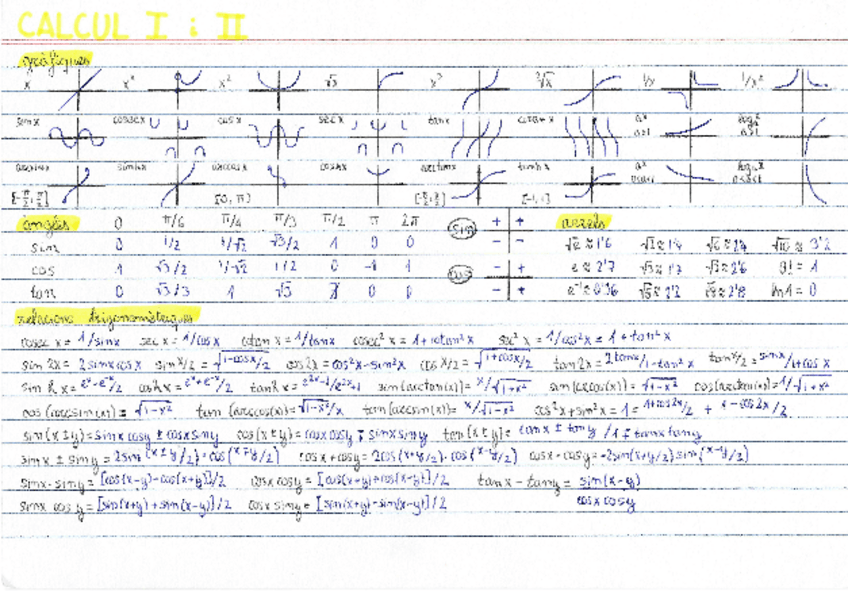 CALCUL I i II
gràfiques
x x⁴ x² √x x³ ∛x 1/x 1/x²
sinx cosecx cosx secx tanx cotanx aˣ a>1 logₐx a>1
arcsinx sinhx arccosx coshx arctanx tanhx aˣ 0<a<1 logₐx 0<a<1
[-π/2, π/2] [0, π] [-π/2, π/2] [-1, 1]
angles 0 π/6 π/4 π/3 π/2 π 2π sin + + arrels
sin 0 1/2 1/√2 √3/2 1 0 0 - - √e ≈ 1'6 √2 ≈ 1'4 √10 ≈ 3'2
cos 1 √3/2 1/√2 1/2 0 -1 1 cos - + e ≈ 2'7 √3 ≈ 1'7 0! = 1
tan 0 √3/3 1 √3 ∄ 0 0 - + e⁻¹ ≈ 0'36 √5 ≈ 2'2 √8 ≈ 2'8 ln1 = 0
relacions trigonomètriques
cosec x = 1/sinx sec x = 1/cosx cotan x = 1/tanx cosec²x = 1+cotan²x sec²x = 1/cos²x = 1+tan²x
sin 2x = 2sinxcosx sin x/2 = √1-cosx/2 cos2x = cos²x-sin²x cos x/2 = √1+cosx/2 tan2x = 2tanx/1-tan²x tan x/2 = sinx/1+cosx
sin h x = eˣ-e⁻ˣ/2 cosh x = eˣ+e⁻ˣ/2 tanh x = e²ˣ-1/e²ˣ+1 sin(arctan(x)) = x/√1+x² sin(arccos(x)) = √1-x² cos(arctan(x)) = 1/√1+x²
cos(arcsin(x)) = √1-x² tan(arccos(x)) = √1-x²/x tan(arcsin(x)) = x/√1-x² cos²x+sin²x = 1 = 1+cos2x/2 + 1-cos2x/2
sin(x±y) = sinx cosy ± cosx siny cos(x±y) = cosx cosy ∓ sinx siny tan(x±y) = tanx ± tany / 1∓tanx tany
sinx ± siny = 2sin(x±y/2)·cos(x∓y/2) cosx+cosy = 2cos(x+y/2)·cos(x-y/2) cosx-cosy = -2sin(x+y/2)sin(x-y/2)
sinx·siny = [cos(x-y)-cos(x+y)]/2 cosx cosy = [cos(x+y)+cos(x-y)]/2 tanx - tany = sin(x-y)
sinx cosy = [sin(x+y)+sin(x-y)]/2 cosx siny = [sin(x+y)-sin(x-y)]/2 cosx cosy